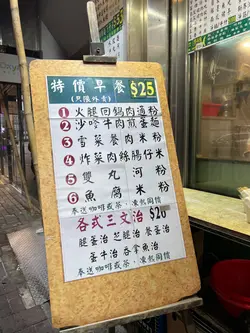 特價早餐 $25
(只限外賣)
1 火腿回鍋肉滷粉
2 沙嗲牛肉煎蛋麵
3 雪菜餐肉米粉
4 炸菜肉絲腸仔米
5 雙丸河粉
6 魚腐米粉
奉送咖啡或茶，凍飲同價
各式三文治 $20
腿蛋治 芝腿治 餐蛋治
蛋牛治 吞拿魚治
奉送咖啡或茶，凍飲同價